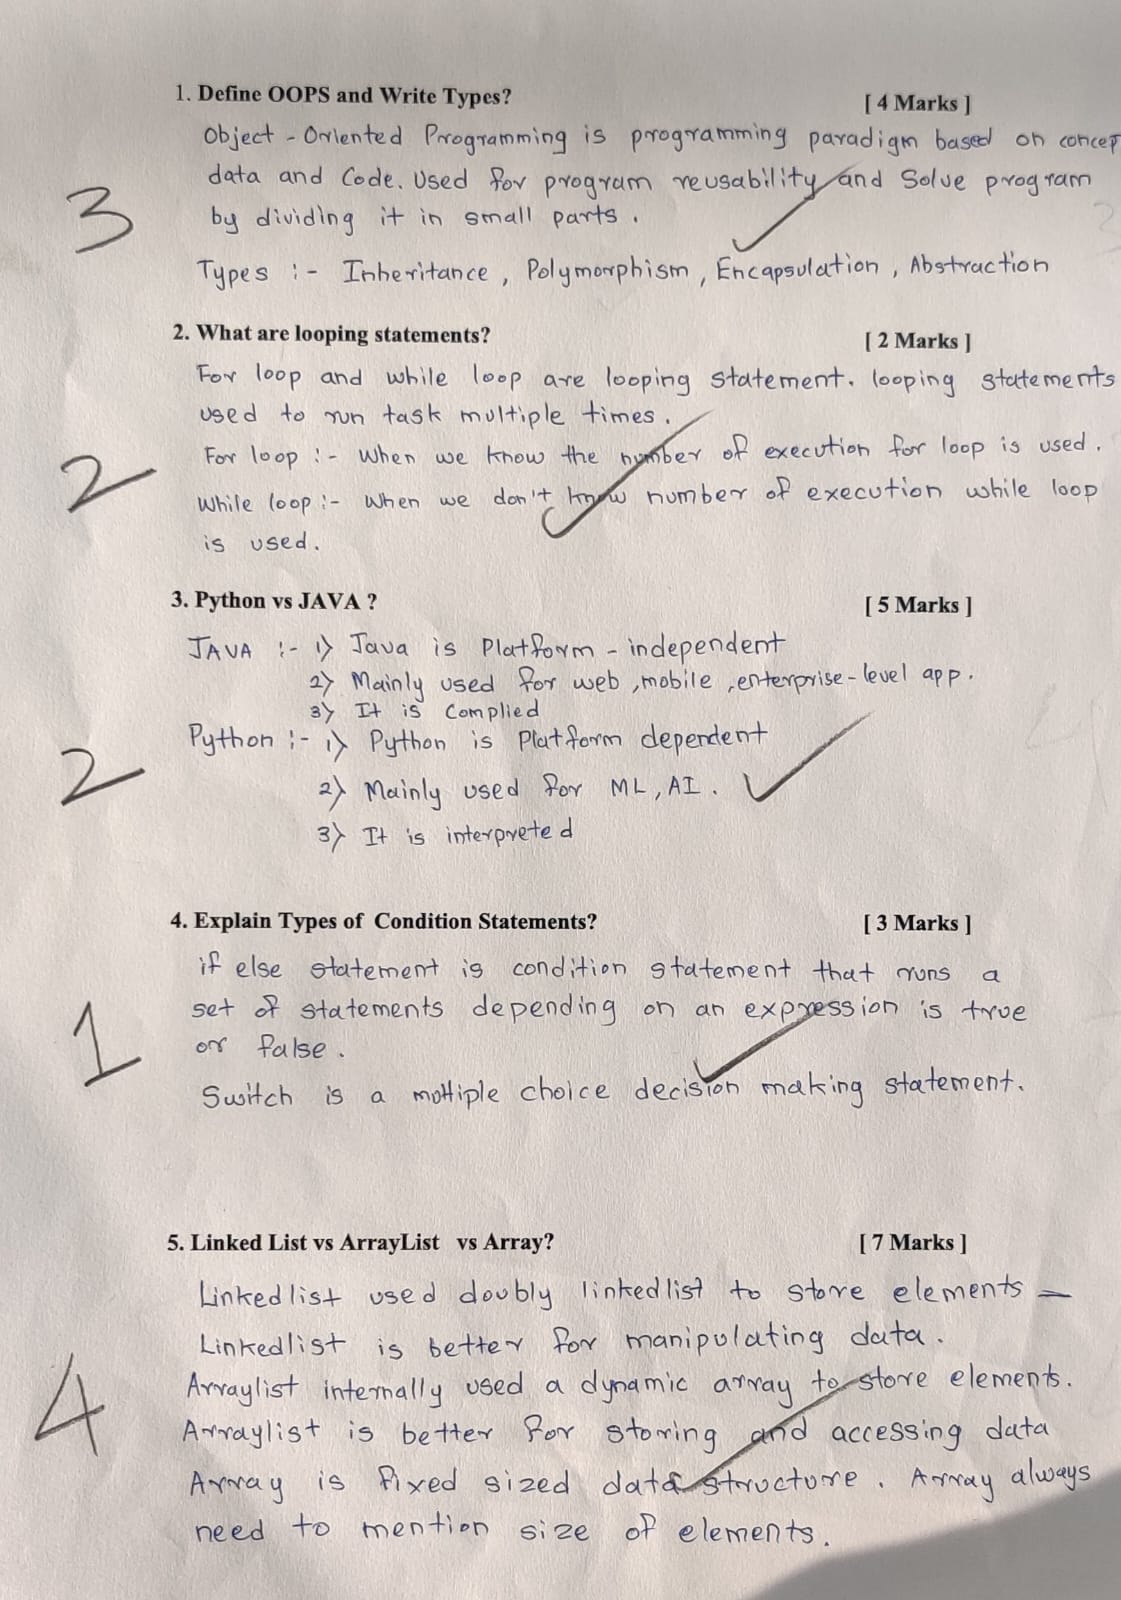 1. Define OOPS and Write Types? [ 4 Marks ]
Object - Oriented Programming is programming paradigm based on concep
data and Code. Used for program reusability and Solve program
3
by dividing it in small parts .
Types :- Inheritance , Polymorphism , Encapsulation , Abstraction
2. What are looping statements? [ 2 Marks ]
For loop and while loop are looping statement. looping statements
used to run task multiple times .
For loop :- When we know the number of execution for loop is used .
2
While loop :- When we don't know number of execution while loop
is used .
3. Python vs JAVA ? [ 5 Marks ]
JAVA :- 1) Java is Platform - independent
2) Mainly used for web , mobile , enterprise - level app .
3) It is Complied
Python :- 1) Python is Platform dependent
2
2) Mainly used for ML , AI .
3) It is interpreted
4. Explain Types of Condition Statements? [ 3 Marks ]
if else statement is condition statement that runs a
set of statements depending on an expression is true
1
or false .
Switch is a multiple choice decision making statement.
5. Linked List vs ArrayList vs Array? [ 7 Marks ]
Linkedlist used doubly linkedlist to store elements -
Linkedlist is better for manipulating data .
Arraylist internally used a dynamic array to store elements.
4
Arraylist is better for storing and accessing data
Array is fixed sized data structure . Array always
need to mention size of elements .